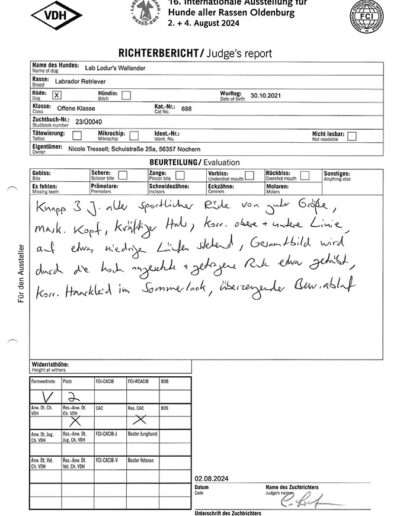 VDH
FCI
16. Internationale Ausstellung für
Hunde aller Rassen Oldenburg
2. + 4. August 2024
RICHTERBERICHT / Judge's report
Name des Hundes: Lab Lodur's Wallander
Name of dog
Rasse: Labrador Retriever
Breed
Rüde: X Hündin: Wurftag: 30.10.2021
Dog Bitch Date of birth
Klasse: Offene Klasse Kat.-Nr.: 688
Class Cat. No.
Zuchtbuch-Nr.: 23/00040
Studbook number
Tätowierung: Mikrochip: Ident.-Nr.: Nicht lesbar:
Tattoo Microchip Ident. No. Not readable
Eigentümer: Nicole Tressell; Schulstraße 25a, 56357 Nochern
Owner
BEURTEILUNG / Evaluation
Gebiss: Schere: Zange: Vorbiss: Rückbiss: Sonstiges:
Bite Scissor bite Pincer bite Undershot mouth Overshot mouth Anything else
Es fehlen: Prämolare: Schneidezähne: Eckzähne: Molaren:
Missing teeth Premolars Incisors Canines Molars
Knapp 3 J. alter sportlicher Rüde von guter Größe,
mask. Kopf, kräftiger Hals, korr. obere + untere Linie,
auf etwas niedrige Läufen stehend, Gesamtbild wird
durch die hoch angesetzte + getragene Rute etwas getrübt,
korr. Haarkleid im Sommerlook, überzeugender Bew.ablauf
Für den Aussteller
Widerristhöhe:
Height at withers
Formwertnote Platz FCI-CACIB FCI-RCACIB BOB
V 2
Anw. Dt. Ch. VDH Res.-Anw. Dt. Ch. VDH CAC Res. CAC BOS
X X
Anw. Dt. Jug. Ch. VDH Res.-Anw. Dt. Jug. Ch. VDH FCI-CACIB-J Bester Junghund
Anw. Dt. Vet. Ch. VDH Res.-Anw. Dt. Vet. Ch. VDH FCI-CACIB-V Bester Veteran
02.08.2024
Datum Name des Zuchtrichters
Date Judge's name
Unterschrift des Zuchtrichters